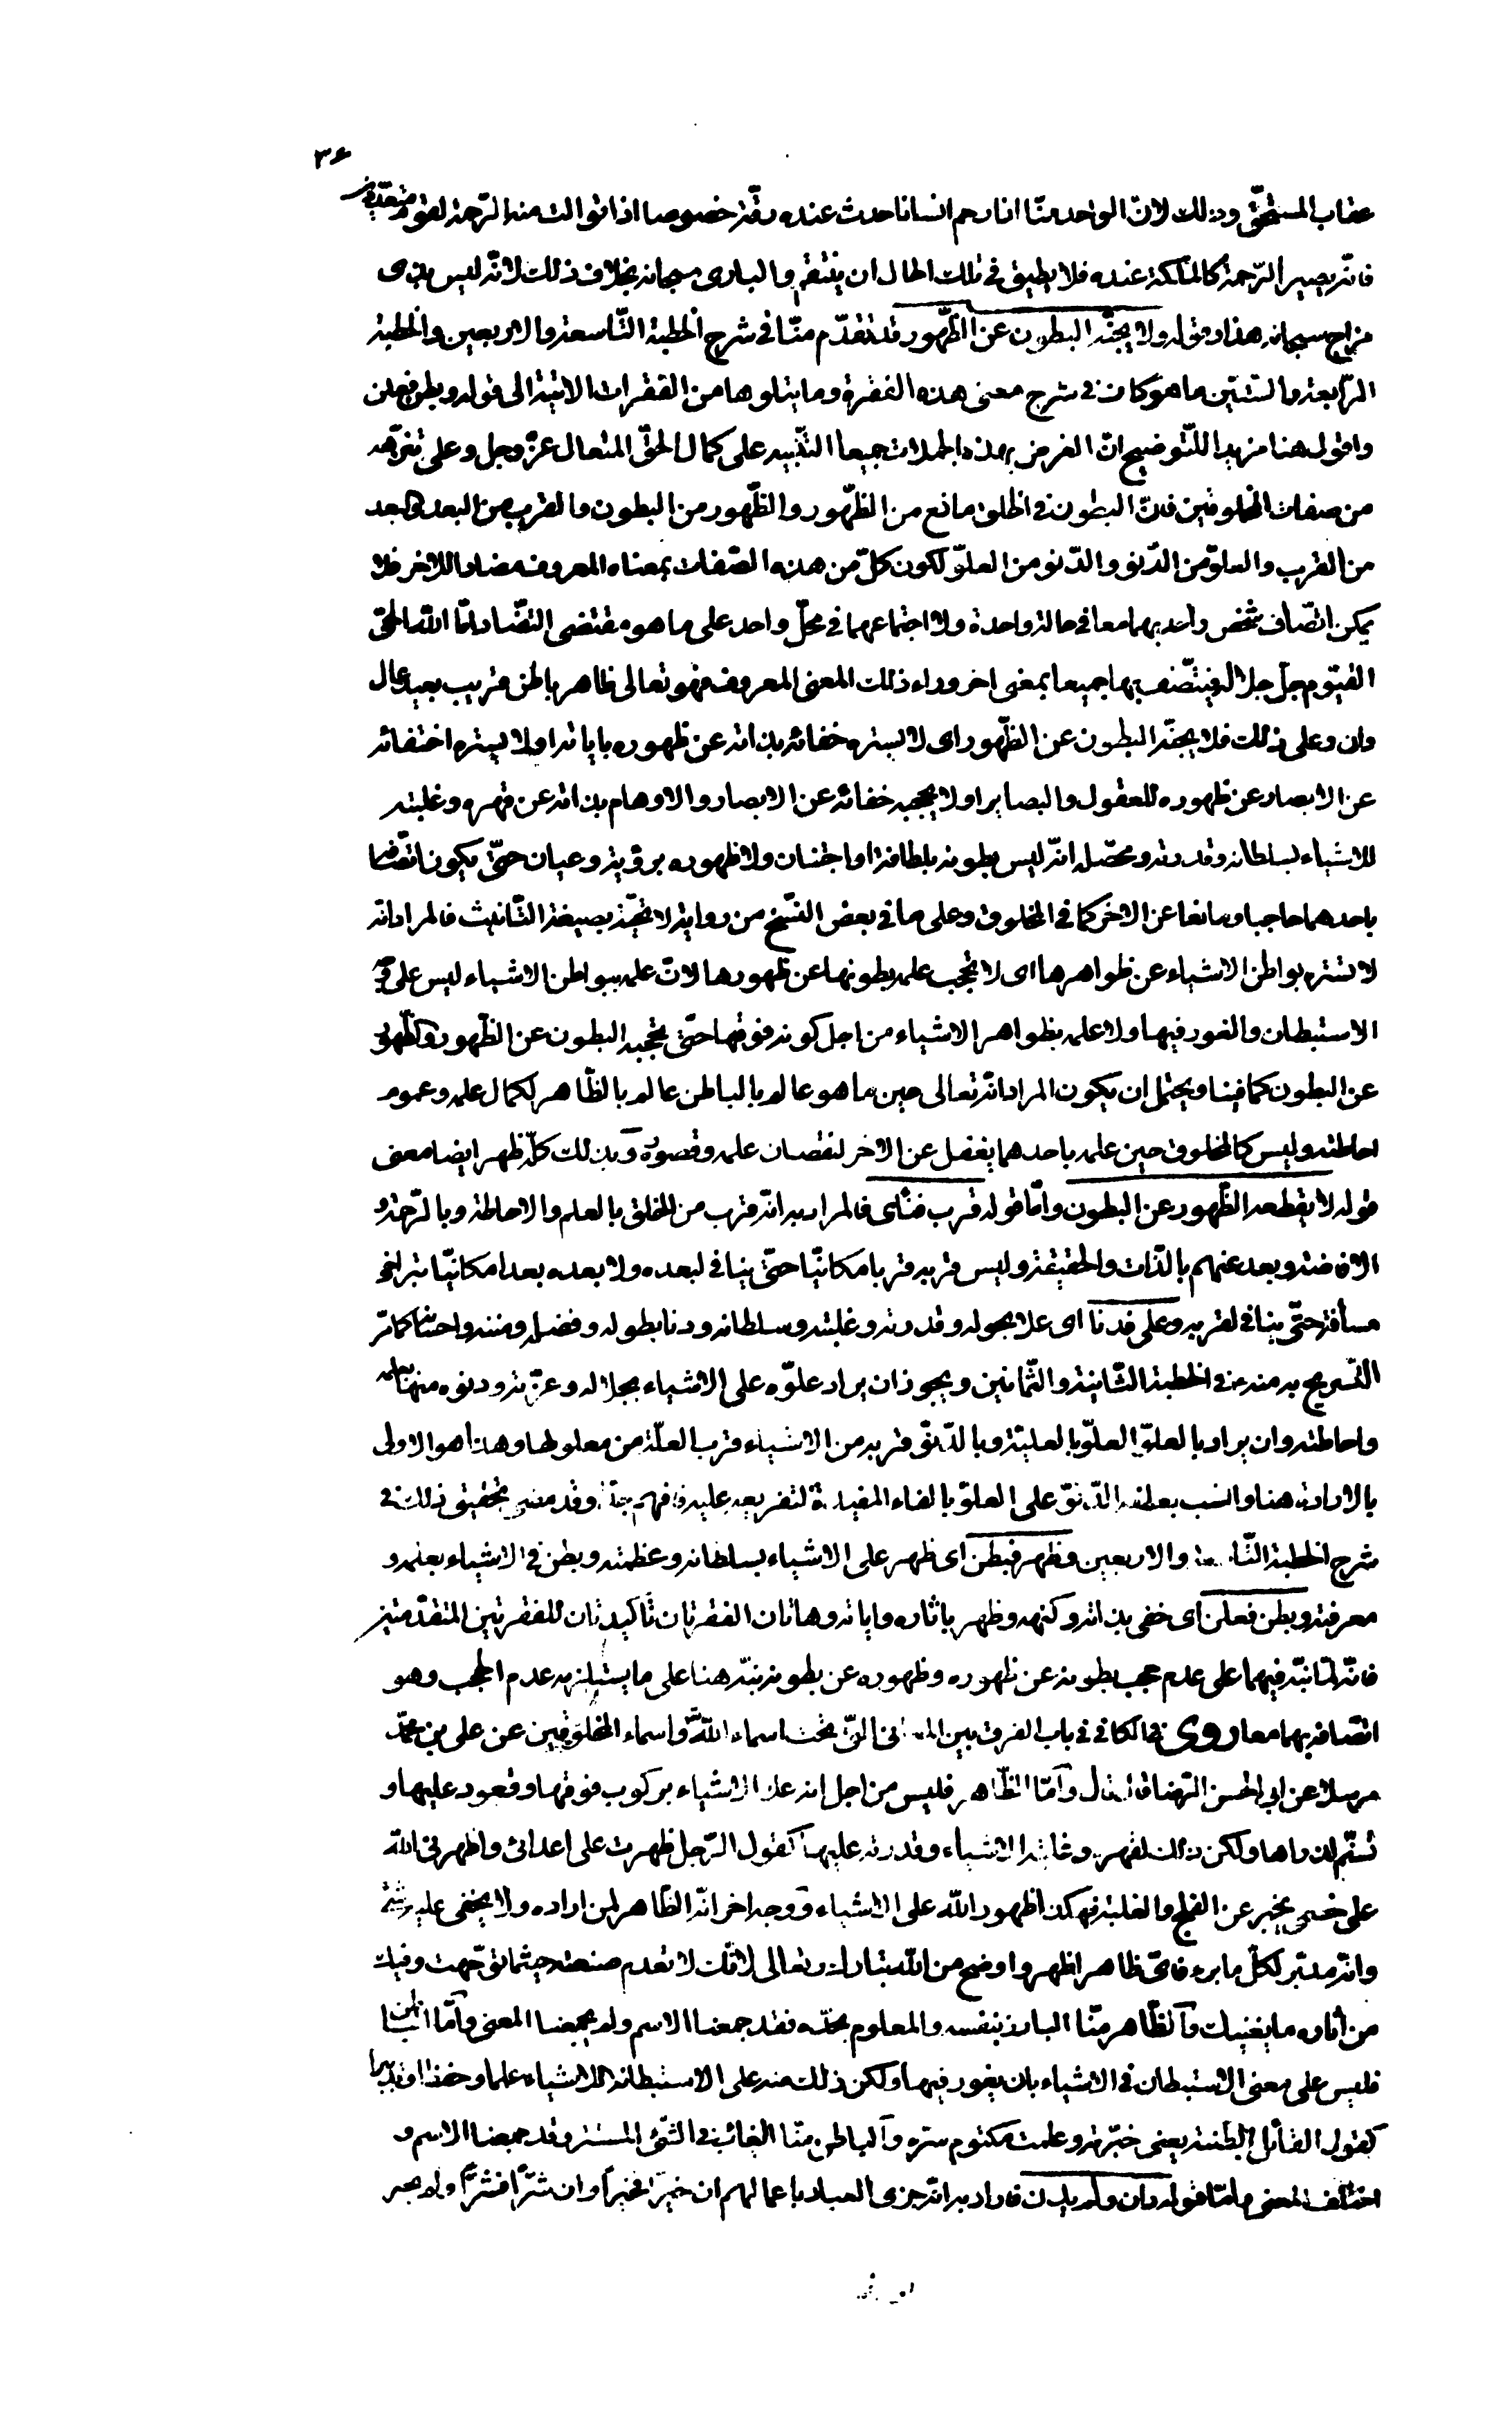 ٣۶
عقاب المستحقّ وذلك لانّ الواحد منّا اذا رحم انسانا حدث عنده رقّة خصوصا اذا توالت منه الرّحمة لقوم متعدّدين
فانّه يصير الرّحمة كالملكة عنده فلا يطيق في تلك الحال ان ينتقم والبارى سبحانه بخلاف ذلك لانّه ليس بذى
مزاج سبحانه هذا وقوله ولا يجنّه البطون عن الظّهور قد تقدّم منّا في شرح الخطبة التّاسعة والاربعين والخطبة
الرّابعة والستّين ما هو كاف في شرح معنى هذه الفقرة وما يتلوها من الفقرات الاتية الى قوله وبطن فعلن
واقول هنا مزيدا للتّوضيح انّ الغرض بهذه الجملات جميعا التنبيه على كمال الحقّ المتعال عزّ وجل وعلى تنزّهه
من صفات المخلوقين فانّ البطون في الخلق مانع من الظّهور والظّهور من البطون والقرب من البعد والبعد
من القرب والعلوّ من الدّنو والدّنو من العلوّ لكون كلّ من هذه الصّفات بمعناه المعروف مضادا للاخر فلا
يمكن اتّصاف شخص واحد بهما معا في حالة واحدة ولا اجتماعهما في محلّ واحد على ما هو مقتضى التضّاد امّا الله الحىّ
القيّوم جلّ جلاله فيتّصف بها جميعا بمعنى اخر وراء ذلك المعنى المعروف فهو تعالى ظاهر باطن قريب بعيد عال
دان وعلى ذلك فلا يجنّه البطون عن الظّهور اى لا يستره خفائه بذاته عن ظهوره باياته او لا يستره اختفائه
عن الابصار عن ظهوره للعقول والبصاير او لا يحجبه خفائه عن الابصار والاوهام بذاته عن قهره وغلبته
للاشياء بسلطانه وقدرته ومحصّله انّه ليس بطونه بلطافة او اجتنان ولا ظهوره برؤية وعيان حتّى يكون اتّصافه
باحدهما حاجبا ومانعا عن الاخر كما في المخلوق وعلى ما في بعض النسّخ من رواية لا تجنّه بصيغة التّانيث فالمراد انه
لا تستره بواطن الاشياء عن ظواهرها اى لا تحجب علمه بطونها عن ظهورها لانّ علمه ببواطن الاشياء ليس على وجه
الاستبطان والغور فيها ولا علمه بظواهر الاشياء من اجل كونه فوقها حتّى يحجبه البطون عن الظّهور والظّهور
عن البطون كما فينا ويحتمل ان يكون المراد انّه تعالى حين ما هو عالم بالباطن عالم بالظّاهر لكمال علمه وعموم
احاطته وليس كالمخلوق حين علمه باحدهما يغفل عن الاخر لنقصان علمه وقصوره وبذلك كلّه ظهر ايضا معنى
قوله لا يقطعه الظّهور عن البطون وامّا قوله قرب فنأى فالمراد به انّه قرب من الخلق بالعلم والاحاطة وبالرّحمة و
الافاضة وبعد عنهم بالذّات والحقيقة وليس قربه قربا مكانيّا حتّى ينافي لبعده ولا بعده بعدا مكانيّا بتراخى
مسافة حتّى ينافي لقربه وعلى فدنا اى علا بحوله وقدرته وغلبته وسلطانه ودنا بطوله وفضله ومننه واحسانه كما مرّ
التّصريح به منه في الخطبة الثّانية والثّمانين ويجوز ان يراد علوّه على الاشياء بجلاله وعزّته ودنوه منها بعلمه
واحاطته وان يراد بالعلوّ العلوّ بالعليّة وبالدّنوّ قربه من الاشياء قرب العلّة من معلولها وهذا هو الاولى
بالارادة هنا وانسب بعطف الدّنوّ على العلوّ بالفاء المفيدة لتفريعه عليه فافهم وقد مضى تحقيق ذلك في
شرح الخطبة والاربعين وظهر فبطن اى ظهر على الاشياء بسلطانه وعظمته وبطن في الاشياء بعلمه و
معرفته وبطن فعلن اى خفى بذاته وكنهه وظهر باثاره واياته وهاتان الفقرتان تأكيدتان للفقرتين المتقدّمتين
فانّه لمّا نبّه فيهما على عدم حجب بطونه عن ظهوره وظهوره عن بطونه نبّه هنا على ما يستلزمه عدم الحجب وهو
اتّصافه بهما معا روى في الكافي في باب الفرق بين المعاني الّتي تحت اسماء الله واسماء المخلوقين عن على بن محمّد
مرسلا عن ابي الحسن الرّضا قال قال وامّا الظّاهر فليس من اجل انه علا الاشياء بركوب فوقها وقعود عليها و
تسنّم لذراها ولكن ذلك لقهره وغلبته الاشياء وقدرته عليها كقول الرّجل ظهرت على اعدائى واظهرنى الله
على خصمى يخبر عن الفلج والغلبة فهكذا ظهور الله على الاشياء ووجه اخر انّه الظّاهر لمن اراده ولا يخفى عليه شئ
وانّه مدبّر لكلّ ما برء فاىّ ظاهر اظهر واوضح من الله تبارك وتعالى لانّك لا تعدم صنعته حيثما توجّهت وفيك
من آثاره ما يغنيك والظّاهر منّا البارز بنفسه والمعلوم بحدّه فقد جمعنا الاسم ولم يجمعنا المعنى وامّا الباطن
فليس على معنى الاستبطان في الاشياء بان يغور فيها ولكن ذلك منه على الاستبطانه للاشياء علما وحفظا وتدبيرا
كقول القائل ابطنته يعنى خبّرته وعلمت مكتوم سرّه والباطن منّا الغائب في الشّئ المستتر وقد جمعنا الاسم و
اختلف المعنى وامّا قوله ودان ولم يدن فاراد به انّه جزى العباد باعمالهم ان خيرا فخيراً وان شرّاً فشرّاً ولم يجز